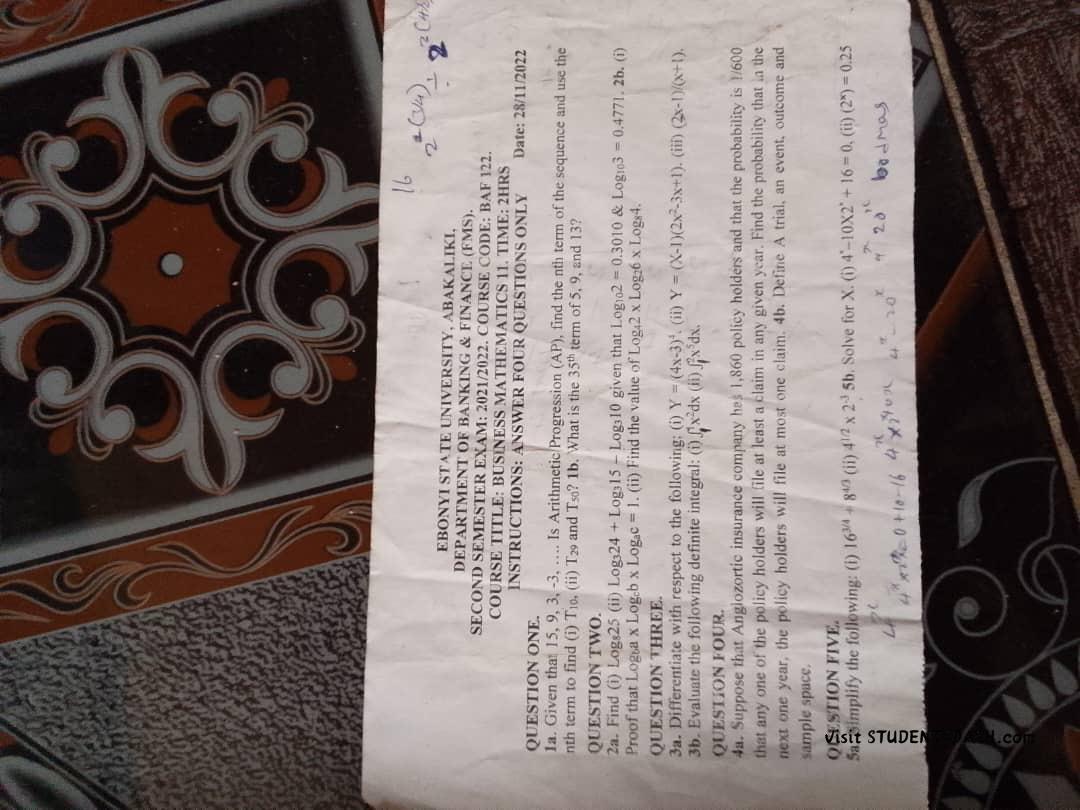 16
EBONYI STATE UNIVERSITY, ABAKALIKI,
DEPARTMENT OF BANKING & FINANCE (FMS).
SECOND SEMESTER EXAM: 2021/2022. COURSE CODE: BAF 122.
COURSE TITLE: BUSINESS MATHEMATICS 11. TIME: 2HRS
INSTRUCTIONS: ANSWER FOUR QUESTIONS ONLY Date: 28/11/2022
QUESTION ONE.
1a. Given that 15, 9, 3, -3, .... Is Arithmetic Progression (AP), find the nth term of the sequence and use the
nth term to find (i) T₁₀, (ii) T₂₉ and T₅₀? 1b. What is the 35th term of 5, 9, and 13?
QUESTION TWO.
2a. Find (i) Log₈25 (ii) Log₃24 + Log₃15 – Log₃10 given that Log₁₀2 = 0.3010 & Log₁₀3 = 0.4771. 2b. (i)
Proof that Logba x Logcb x Logac = 1. (ii) Find the value of Log₄2 x Log₂6 x Log₈4.
QUESTION THREE.
3a. Differentiate with respect to the following; (i) Y = (4x-3)⁴, (ii) Y = (X-1)(2x²-3x+1), (iii) (2x-1)/(x+1).
3b. Evaluate the following definite integral: (i) ∫x²dx (ii) ∫x⁵dx.
QUESTION FOUR.
4a. Suppose that Anglozortic insurance company has 1,860 policy holders and that the probability is 1/600
that any one of the policy holders will file at least a claim in any given year. Find the probability that in the
next one year, the policy holders will file at most one claim. 4b. Define A trial, an event, outcome and
sample space.
QUESTION FIVE.
5a. Simplify the following: (i) 16³ᐟ⁴ ÷ 8⁴ᐟ³ (ii) 4¹ᐟ² x 2⁻³ 5b. Solve for X. (i) 4ˣ–10X2ˣ + 16 = 0, (ii) (2ˣ) = 0.25
bodmas
Visit STUDENT
.com